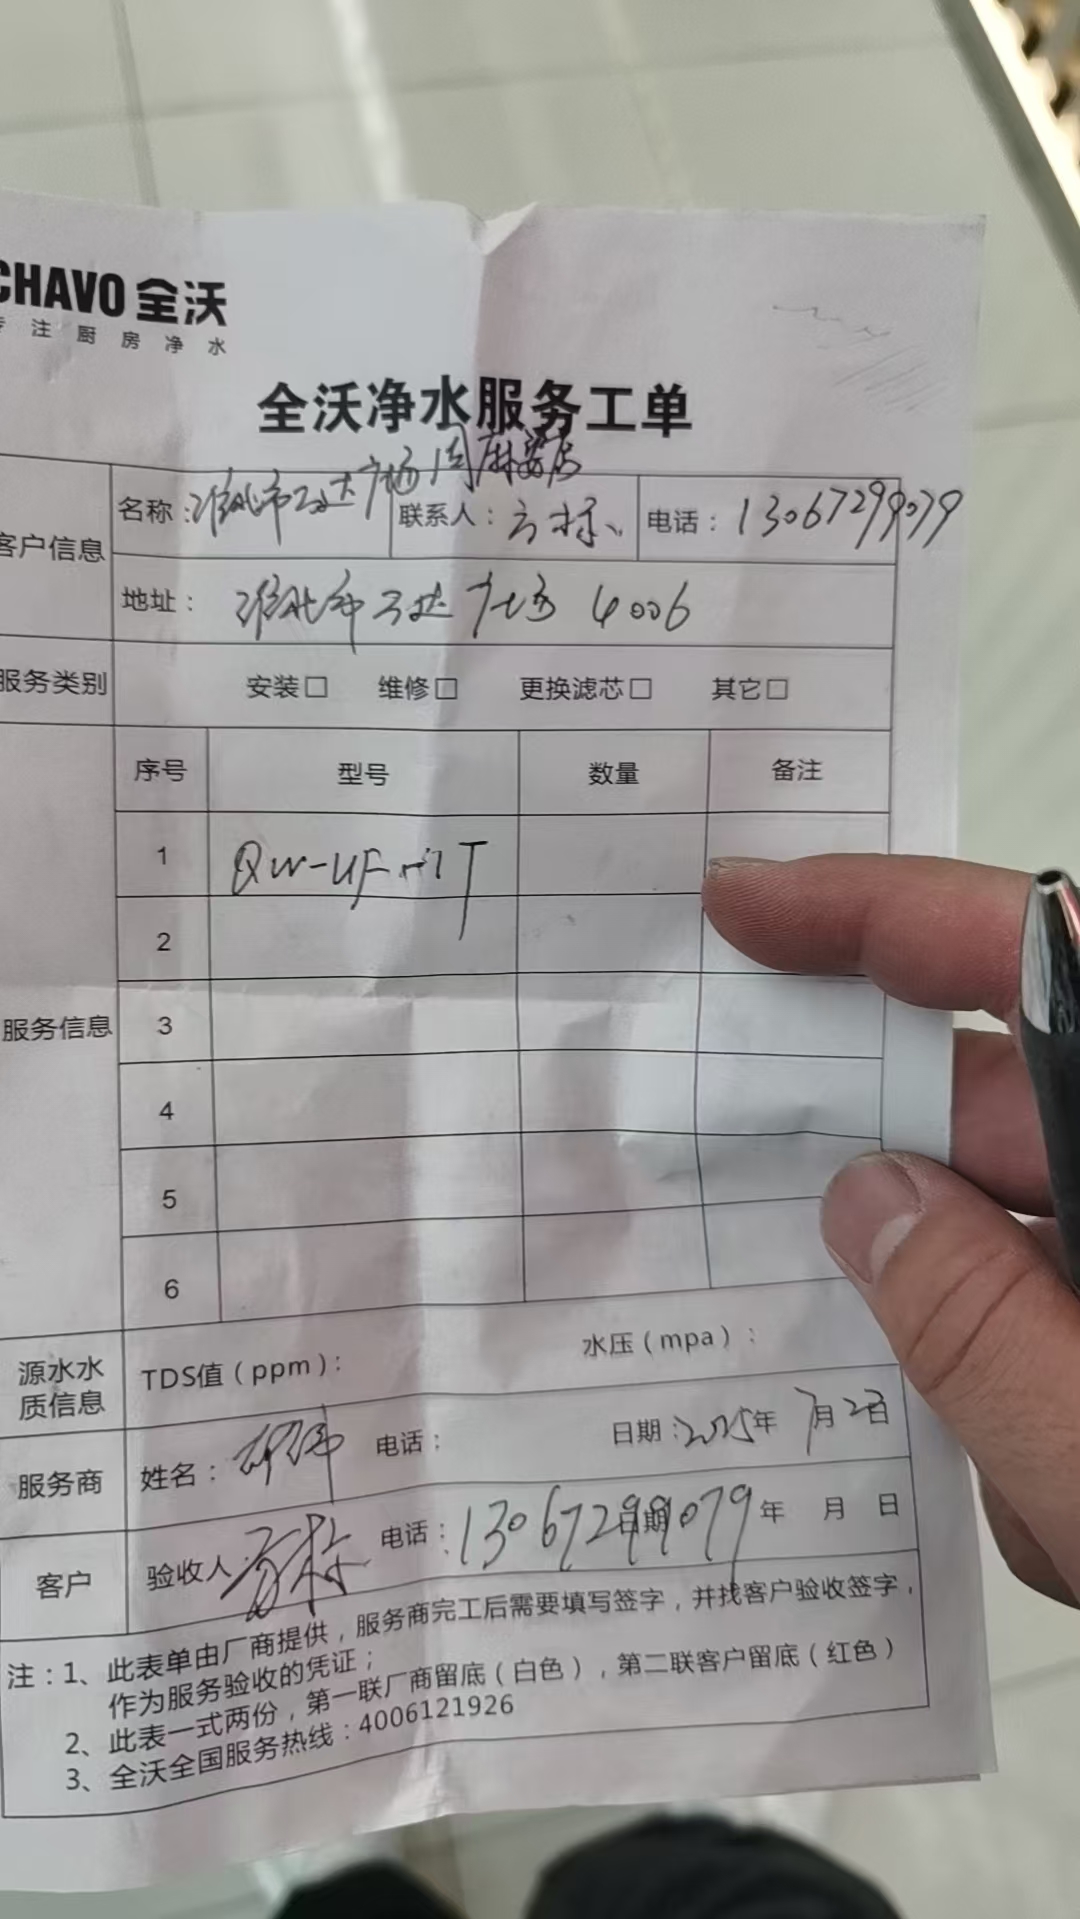 CHAVO 全沃
专注厨房净水
全沃净水服务工单
客户信息 名称：淮北市万达广场周麻婆店 联系人：方标 电话：13067299079
地址：淮北市万达广场 4006
服务类别 安装□ 维修□ 更换滤芯□ 其它□
服务信息 序号 型号 数量 备注
1 QW-UF
2
3
4
5
6
源水水质信息 TDS值（ppm）： 水压（mpa）：
服务商 姓名： 电话： 日期：2025年 7月2日
客户 验收人 方标 电话：13067299079 日期 年 月 日
注：1、此表单由厂商提供，服务商完工后需要填写签字，并找客户验收签字，
作为服务验收的凭证；
2、此表一式两份，第一联厂商留底（白色），第二联客户留底（红色）
3、全沃全国服务热线：4006121926